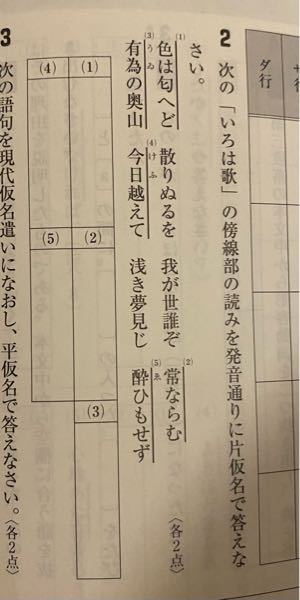 サ行
ダ行
2 次の「いろは歌」の傍線部の読みを発音通りに片仮名で答えな
さい。〈各2点〉
(1)色は匂へど 散りぬるを 我が世誰ぞ (2)常ならむ
(3)有為(うゐ)の奥山 (4)今日(けふ)越えて 浅き夢見じ (5)酔(ゑ)ひもせず
(1) (2) (3)
(4) (5)
3 次の語句を現代仮名遣いになおし、平仮名で答えなさい。〈各2点〉